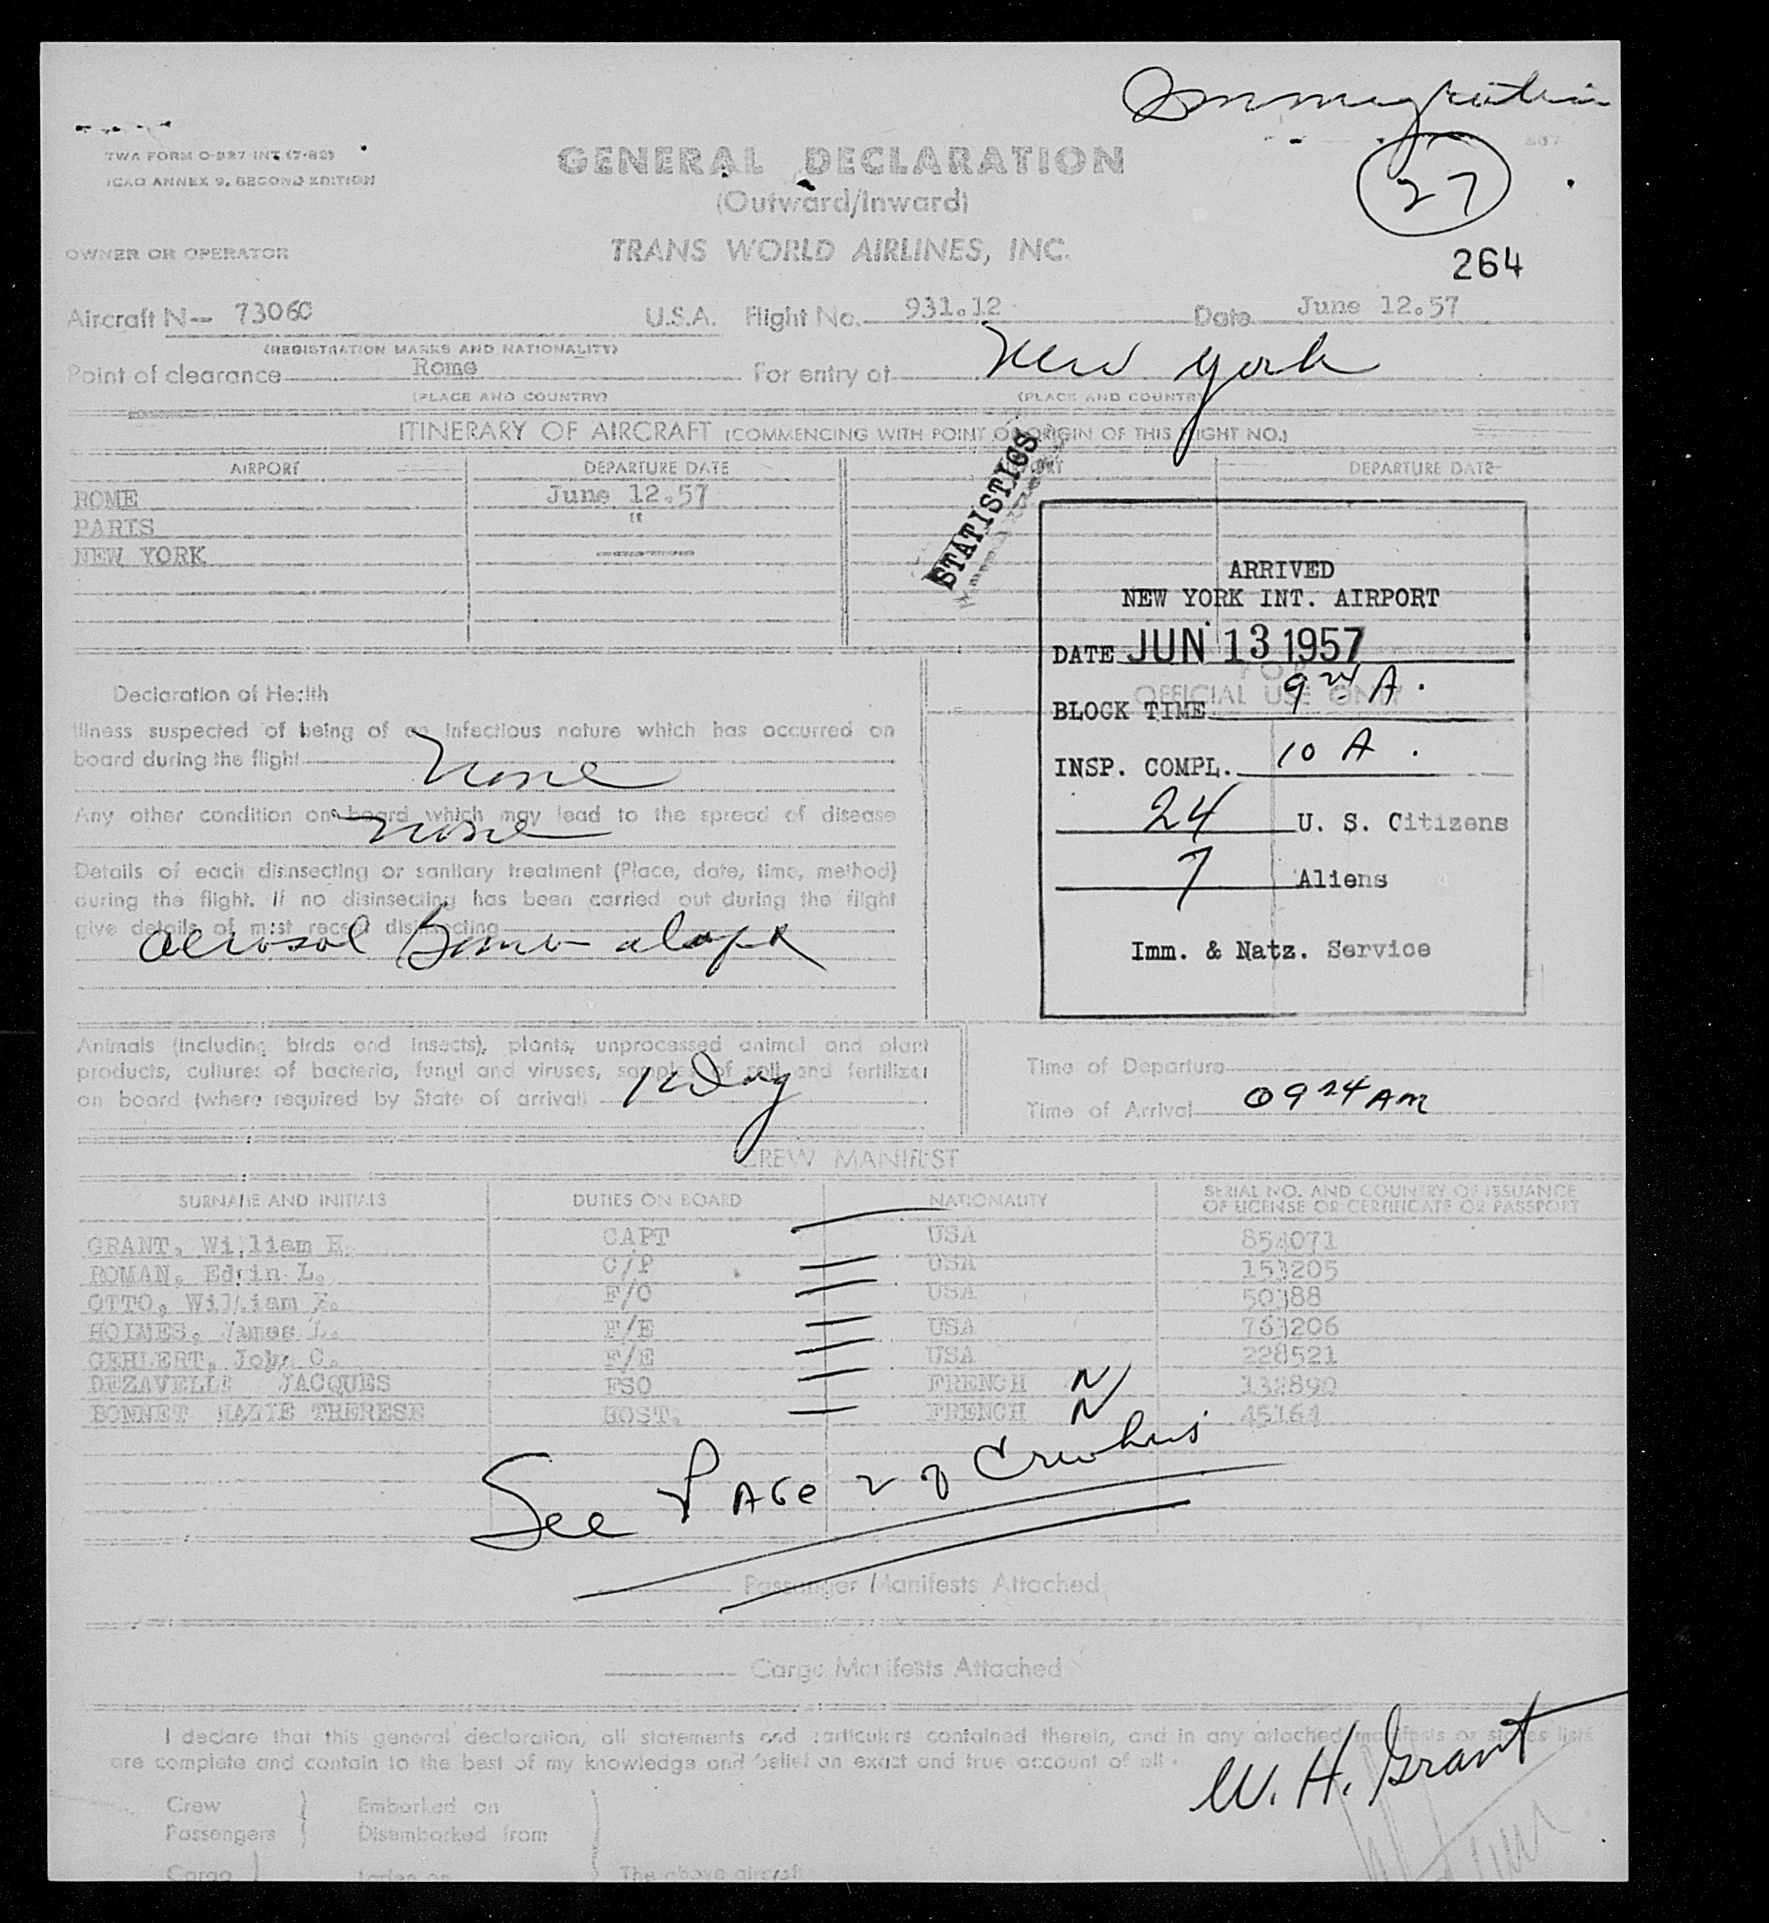 Immigration
TWA FORM O-927 INT (7-82)
ICAO ANNEX 9, SECOND EDITION
GENERAL DECLARATION
(Outward/Inward)
27
OWNER OR OPERATOR
TRANS WORLD AIRLINES, INC.
264
Aircraft N-- 73060 U.S.A. Flight No. 931.12 Date June 12.57
(REGISTRATION MARKS AND NATIONALITY)
Point of clearance Rome For entry at New York
(PLACE AND COUNTRY) (PLACE AND COUNTRY)
ITINERARY OF AIRCRAFT (COMMENCING WITH POINT OF ORIGIN OF THIS FLIGHT NO.)
AIRPORT DEPARTURE DATE AIRPORT DEPARTURE DATE
ROME June 12.57
PARIS "
NEW YORK
STATISTICS
ARRIVED
NEW YORK INT. AIRPORT
DATE JUN 13 1957
FOR
OFFICIAL USE ONLY
BLOCK TIME 9 24 A.
INSP. COMPL. 10 A.
24 U. S. Citizens
7 Aliens
Imm. & Natz. Service
Declaration of Health
Illness suspected of being of an infectious nature which has occurred on
board during the flight None
Any other condition on board which may lead to the spread of disease
None
Details of each disinsecting or sanitary treatment (Place, date, time, method)
during the flight. If no disinsecting has been carried out during the flight
give details of most recent disinsecting
Aerosol Bomb
Animals (including birds and insects), plants, unprocessed animal and plant
products, cultures of bacteria, fungi and viruses, samples of soil and fertilizer
on board (where required by State of arrival) 1 Dog
Time of Departure
Time of Arrival 0924 AM
CREW MANIFEST
SURNAME AND INITIALS DUTIES ON BOARD NATIONALITY SERIAL NO. AND COUNTRY OF ISSUANCE
OF LICENSE OR CERTIFICATE OR PASSPORT
GRANT, William H. CAPT USA 854071
ROMAN, Edwin L. C/P USA 153205
OTTO, William F/O USA 50388
HOLMES, James L. F/E USA 763206
GEHLERT, John C. F/E USA 228521
DEZAVELLE JACQUES FSO FRENCH N 132890
BONNET MARIE THERESE HOST. FRENCH N 45164
See Page 2 of Crew
Passenger Manifests Attached
Cargo Manifests Attached
I declare that this general declaration, all statements and particulars contained therein, and in any attached manifests or stores lists
are complete and contain to the best of my knowledge and belief an exact and true account of all
W. H. Grant
Crew Embarked on
Passengers Disembarked from
Cargo Laden on The above aircraft